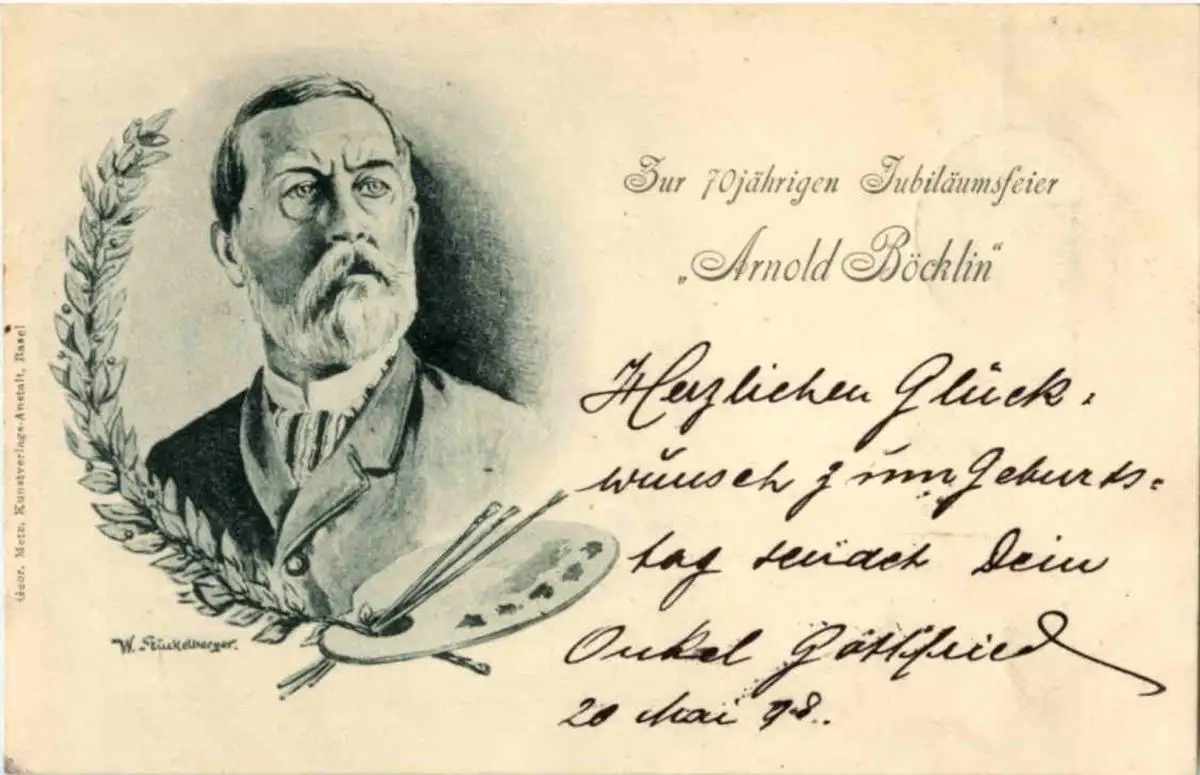 Zur 70jährigen Jubiläumsfeier
„Arnold Böcklin“
Herzlichen Glück-
wunsch zum Geburts-
tag sendet Dein
Onkel Gottfried
20 Mai 98.
W. Stückelberger.
Geor. Metz, Kunstverlags-Anstalt, Basel